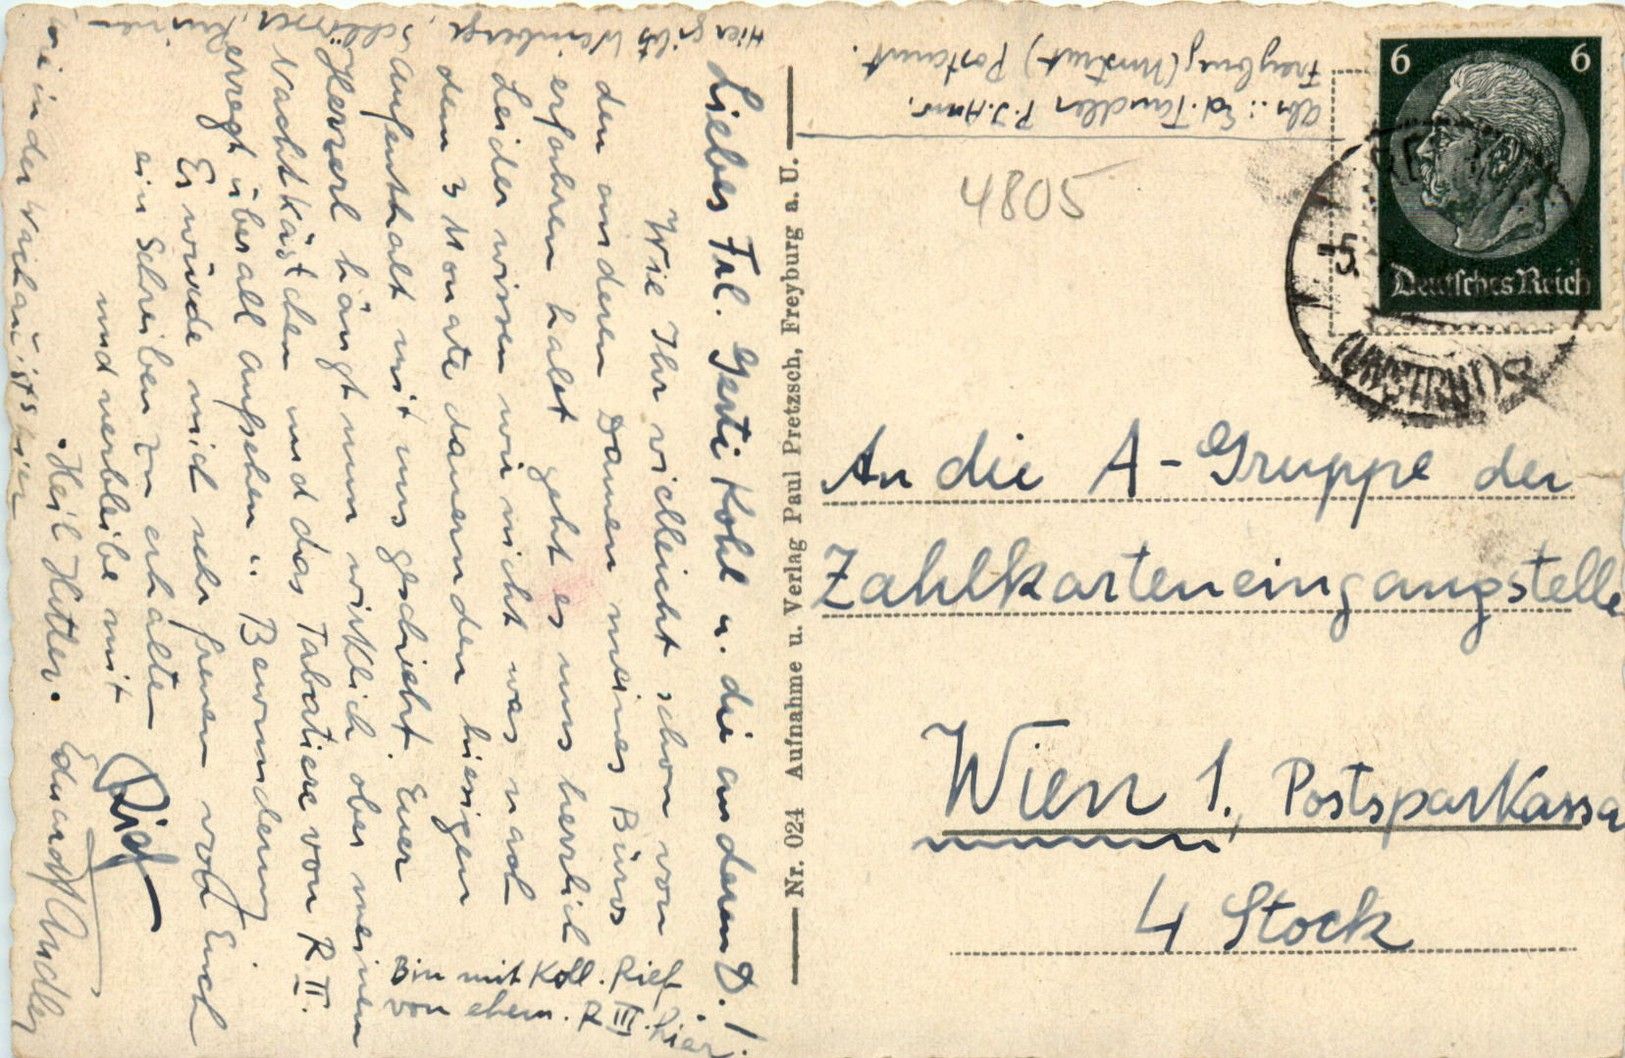 Liebes Frl. Gerti Kohl u. die anderen D.!
Wie Ihr vielleicht schon von
den anderen Damen meines Büros
erfahren habt geht es uns herrlich
Leider wissen wir nicht was nach
dem 3 Monate dauernden hiesigen
Aufenthalt mit uns geschieht. Euer
Herzerl hängt nun wirklich ober meinem
Nachtkästchen und das Tabatiere von R II.
erregt überall Aufsehen u. Bewunderung
Es würde mich sehr freuen von Euch
ein Schreiben zu erhalten
und verbleibe mit
Rief
Heil Hitler. Eduard Tandler
Bin mit Koll. Rief
von ehem. R III. hier.
Hier gibts Weinberge,
Schlösser, Ruinen
wie in der Wachau ists hier
Nr. 024 Aufnahme u. Verlag Paul Pretzsch, Freyburg a. U.
Abs.: Ed. Tandler P.J.Anw.
Freyburg (Unstrut) Postamt.
4805
6 6
Deutsches Reich
5.
(UNSTRUT)
An die A-Gruppe der
Zahlkarteneingangstelle
Wien 1, Postsparkassa
4 Stock